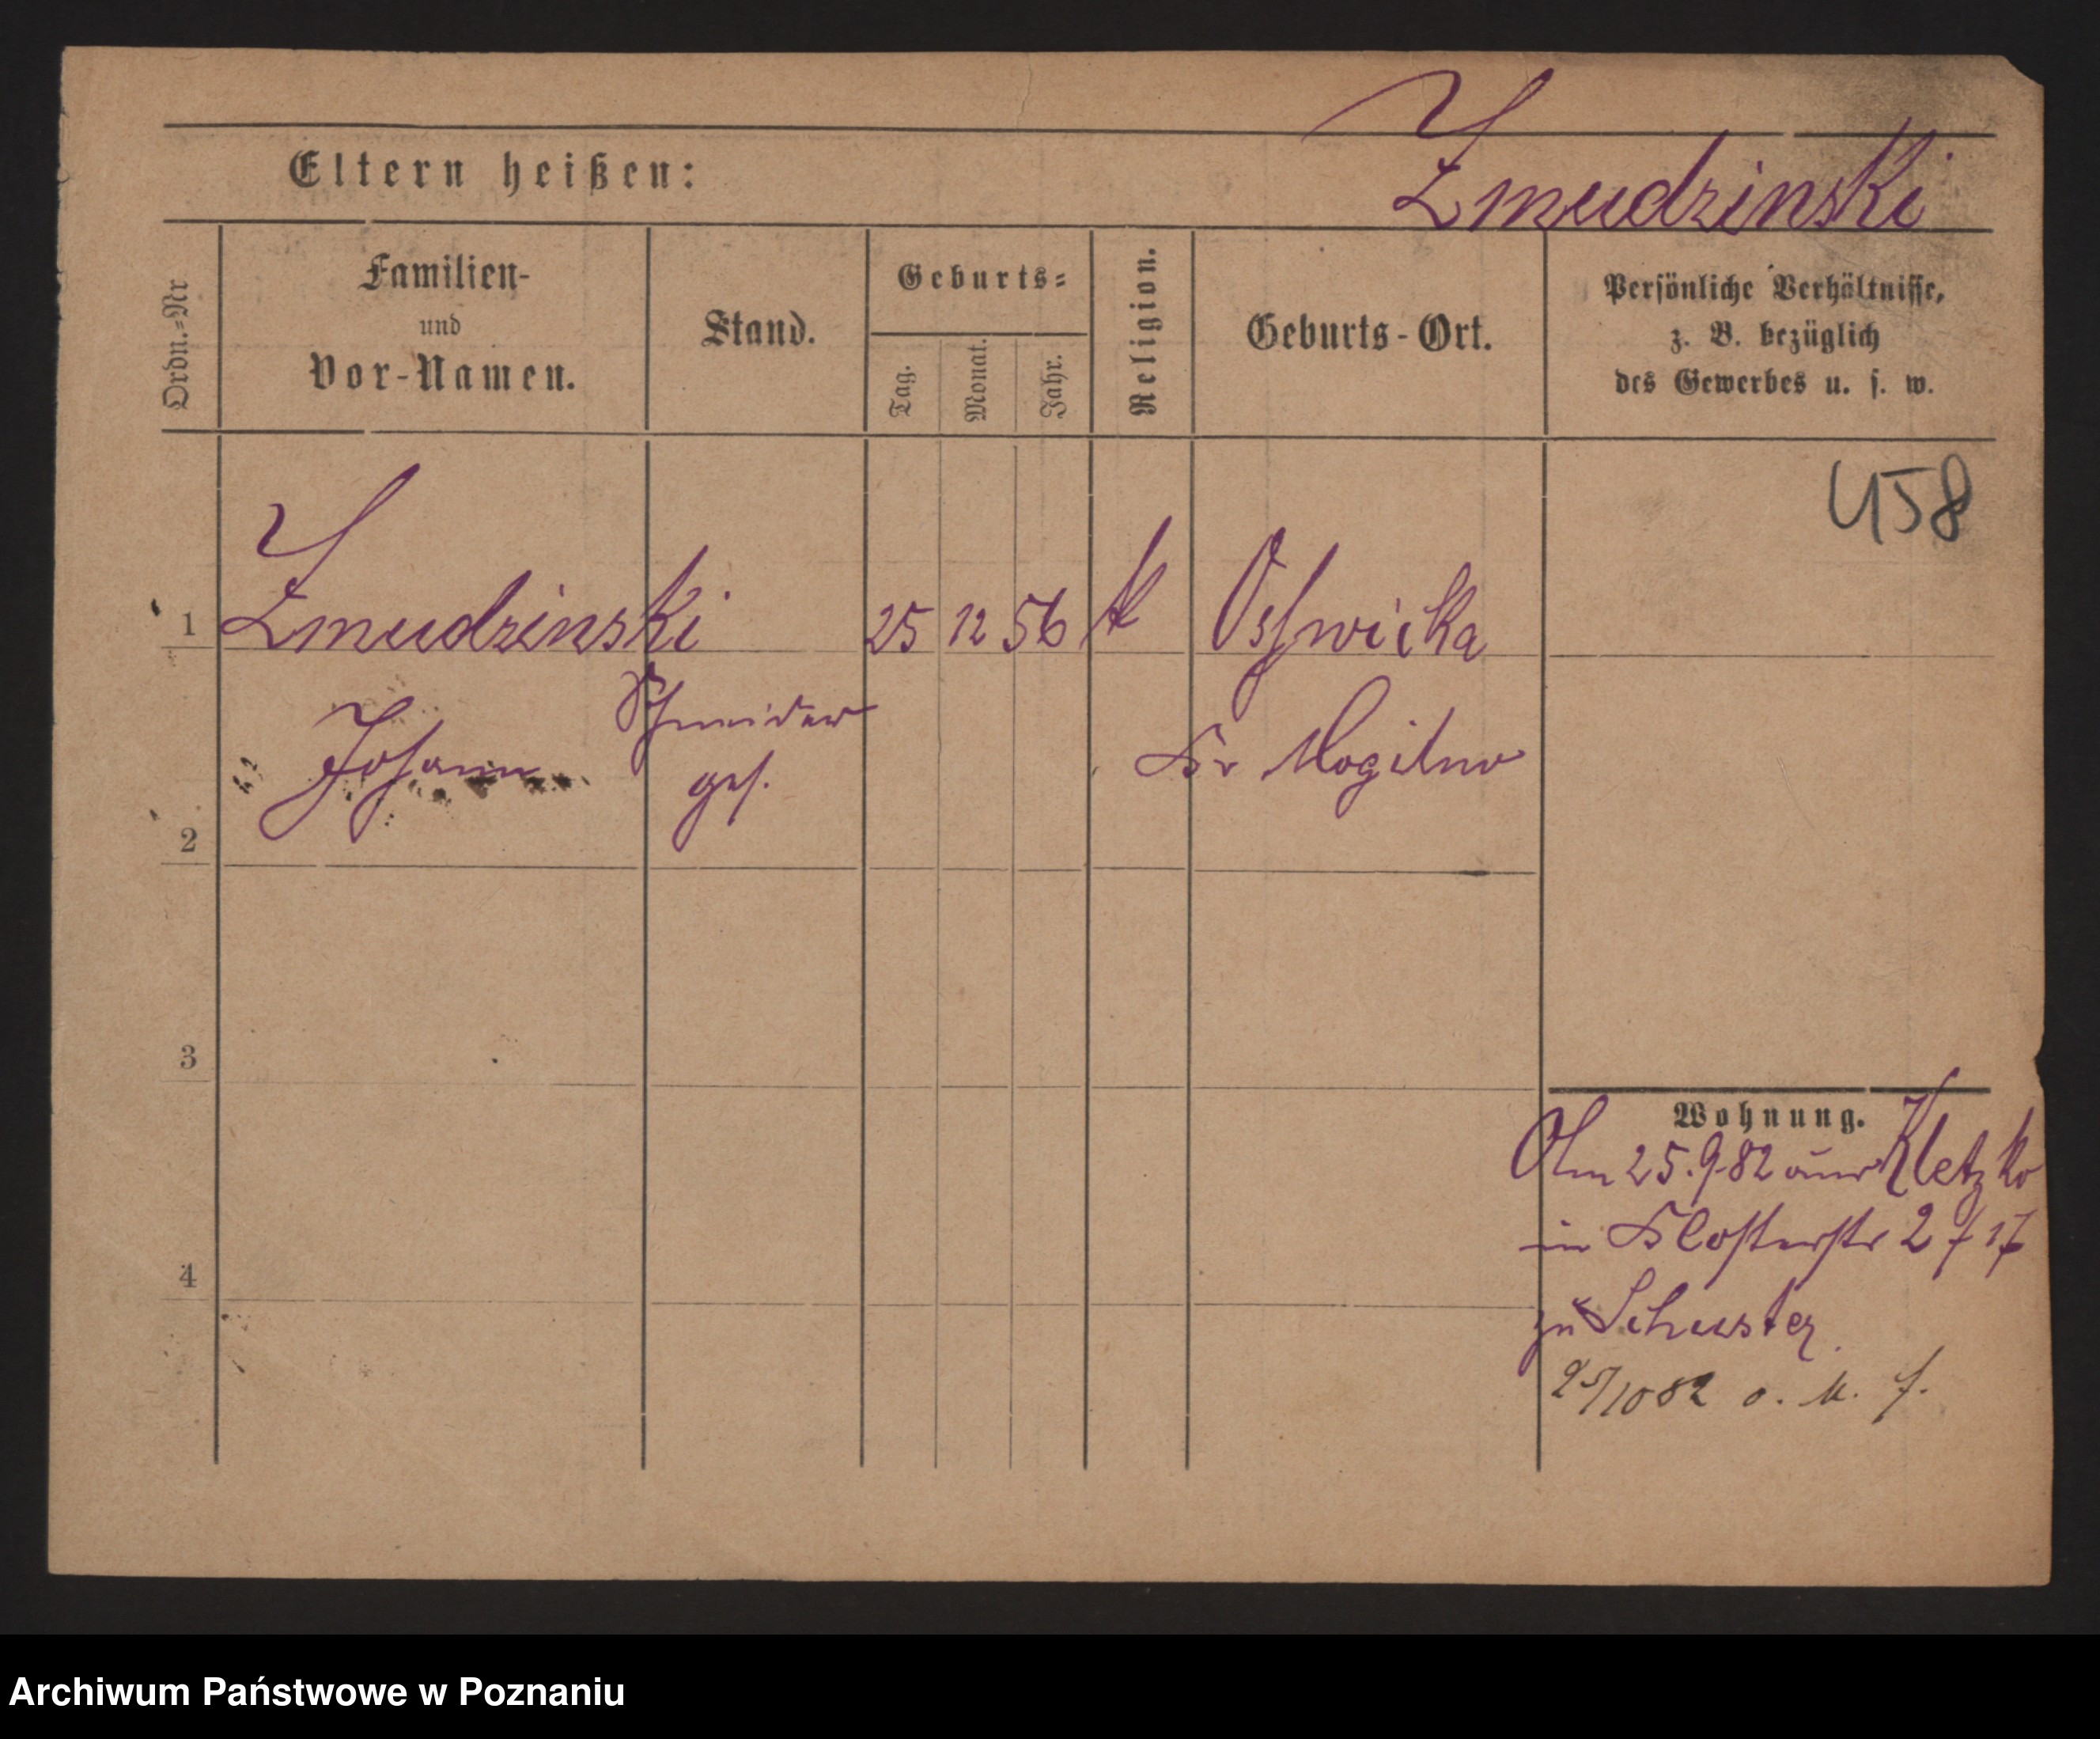 Eltern heißen:
Zmudzinski
Ordn.=Nr
Familien-
und
Vor-Namen.
Stand.
Geburts=
Tag.
Monat.
Jahr.
Religion.
Geburts-Ort.
Persönliche Verhältnisse,
z. B. bezüglich
des Gewerbes u. s. w.
458
1 Zmudzinski 25 12 56 k
Johann Schneider Kr Mogilno
ges.
2
3
4
Wohnung.
Am 25.9.82 aus Kletzko
in Klosterstr 2 / 17
zu Schuster
25/10 82 o. u. f.
Archiwum Państwowe w Poznaniu